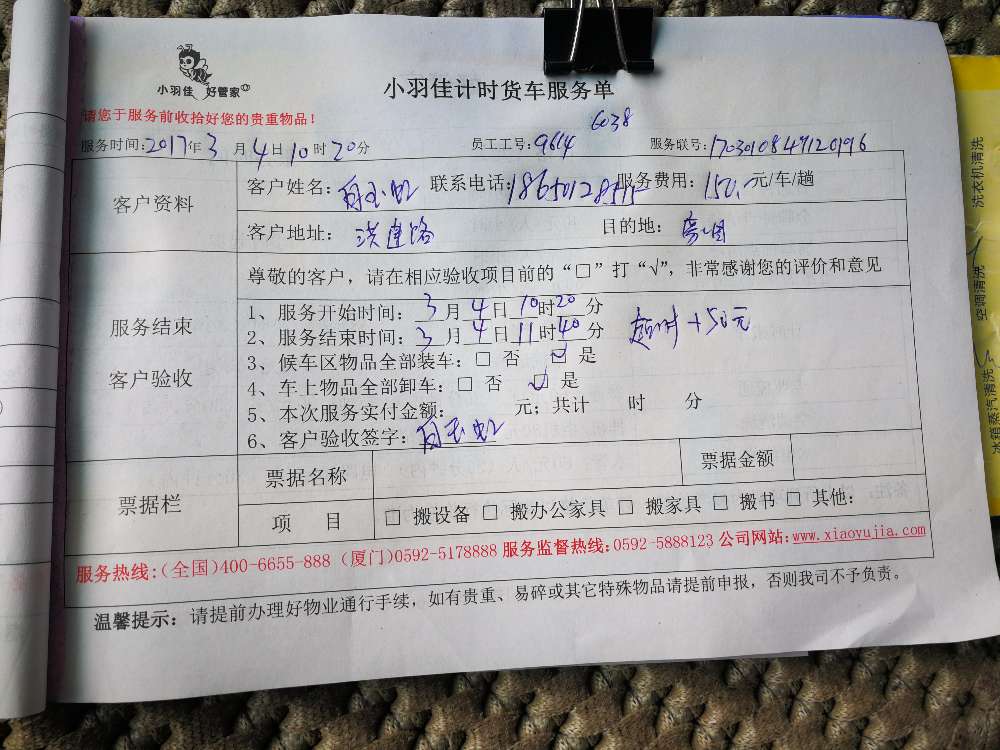 小羽佳 好管家
小羽佳计时货车服务单
请您于服务前收拾好您的贵重物品！
6038
服务时间:2017年3月4日10时20分 员工工号:9614 服务联号:1703010847120196
客户资料
客户姓名: 联系电话:18650128515 服务费用: 150.元/车/趟
客户地址: 洪莲路 目的地:
服务结束
客户验收
尊敬的客户，请在相应验收项目前的“□”打“√”，非常感谢您的评价和意见
1、服务开始时间: 3月4日10时20分
2、服务结束时间: 3月4日11时40分 超时+50元
3、候车区物品全部装车: □ 否 ☑ 是
4、车上物品全部卸车: □ 否 ☑ 是
5、本次服务实付金额: 元; 共计 时 分
6、客户验收签字:
票据栏
票据名称 票据金额
项 目 □ 搬设备 □ 搬办公家具 □ 搬家具 □ 搬书 □ 其他:
服务热线:(全国)400-6655-888 (厦门)0592-5178888 服务监督热线:0592-5888123 公司网站:www.xiaoyujia.com
温馨提示: 请提前办理好物业通行手续，如有贵重、易碎或其它特殊物品请提前申报，否则我司不予负责。
洗衣机清洗
空调清洗